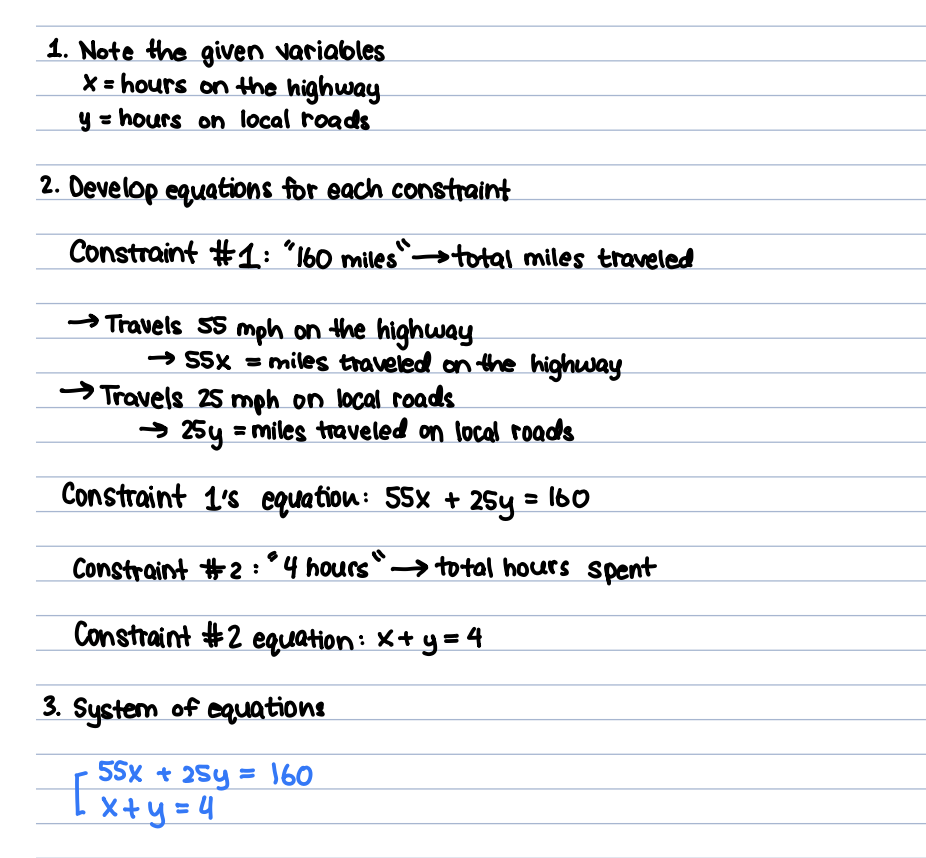 1. Note the given variables
x = hours on the highway
y = hours on local roads
2. Develop equations for each constraint
Constraint #1: "160 miles" → total miles traveled
→ Travels 55 mph on the highway
→ 55x = miles traveled on the highway
→ Travels 25 mph on local roads
→ 25y = miles traveled on local roads
Constraint 1's equation: 55x + 25y = 160
Constraint #2: "4 hours" → total hours spent
Constraint #2 equation: x + y = 4
3. System of equations
55x + 25y = 160
x + y = 4